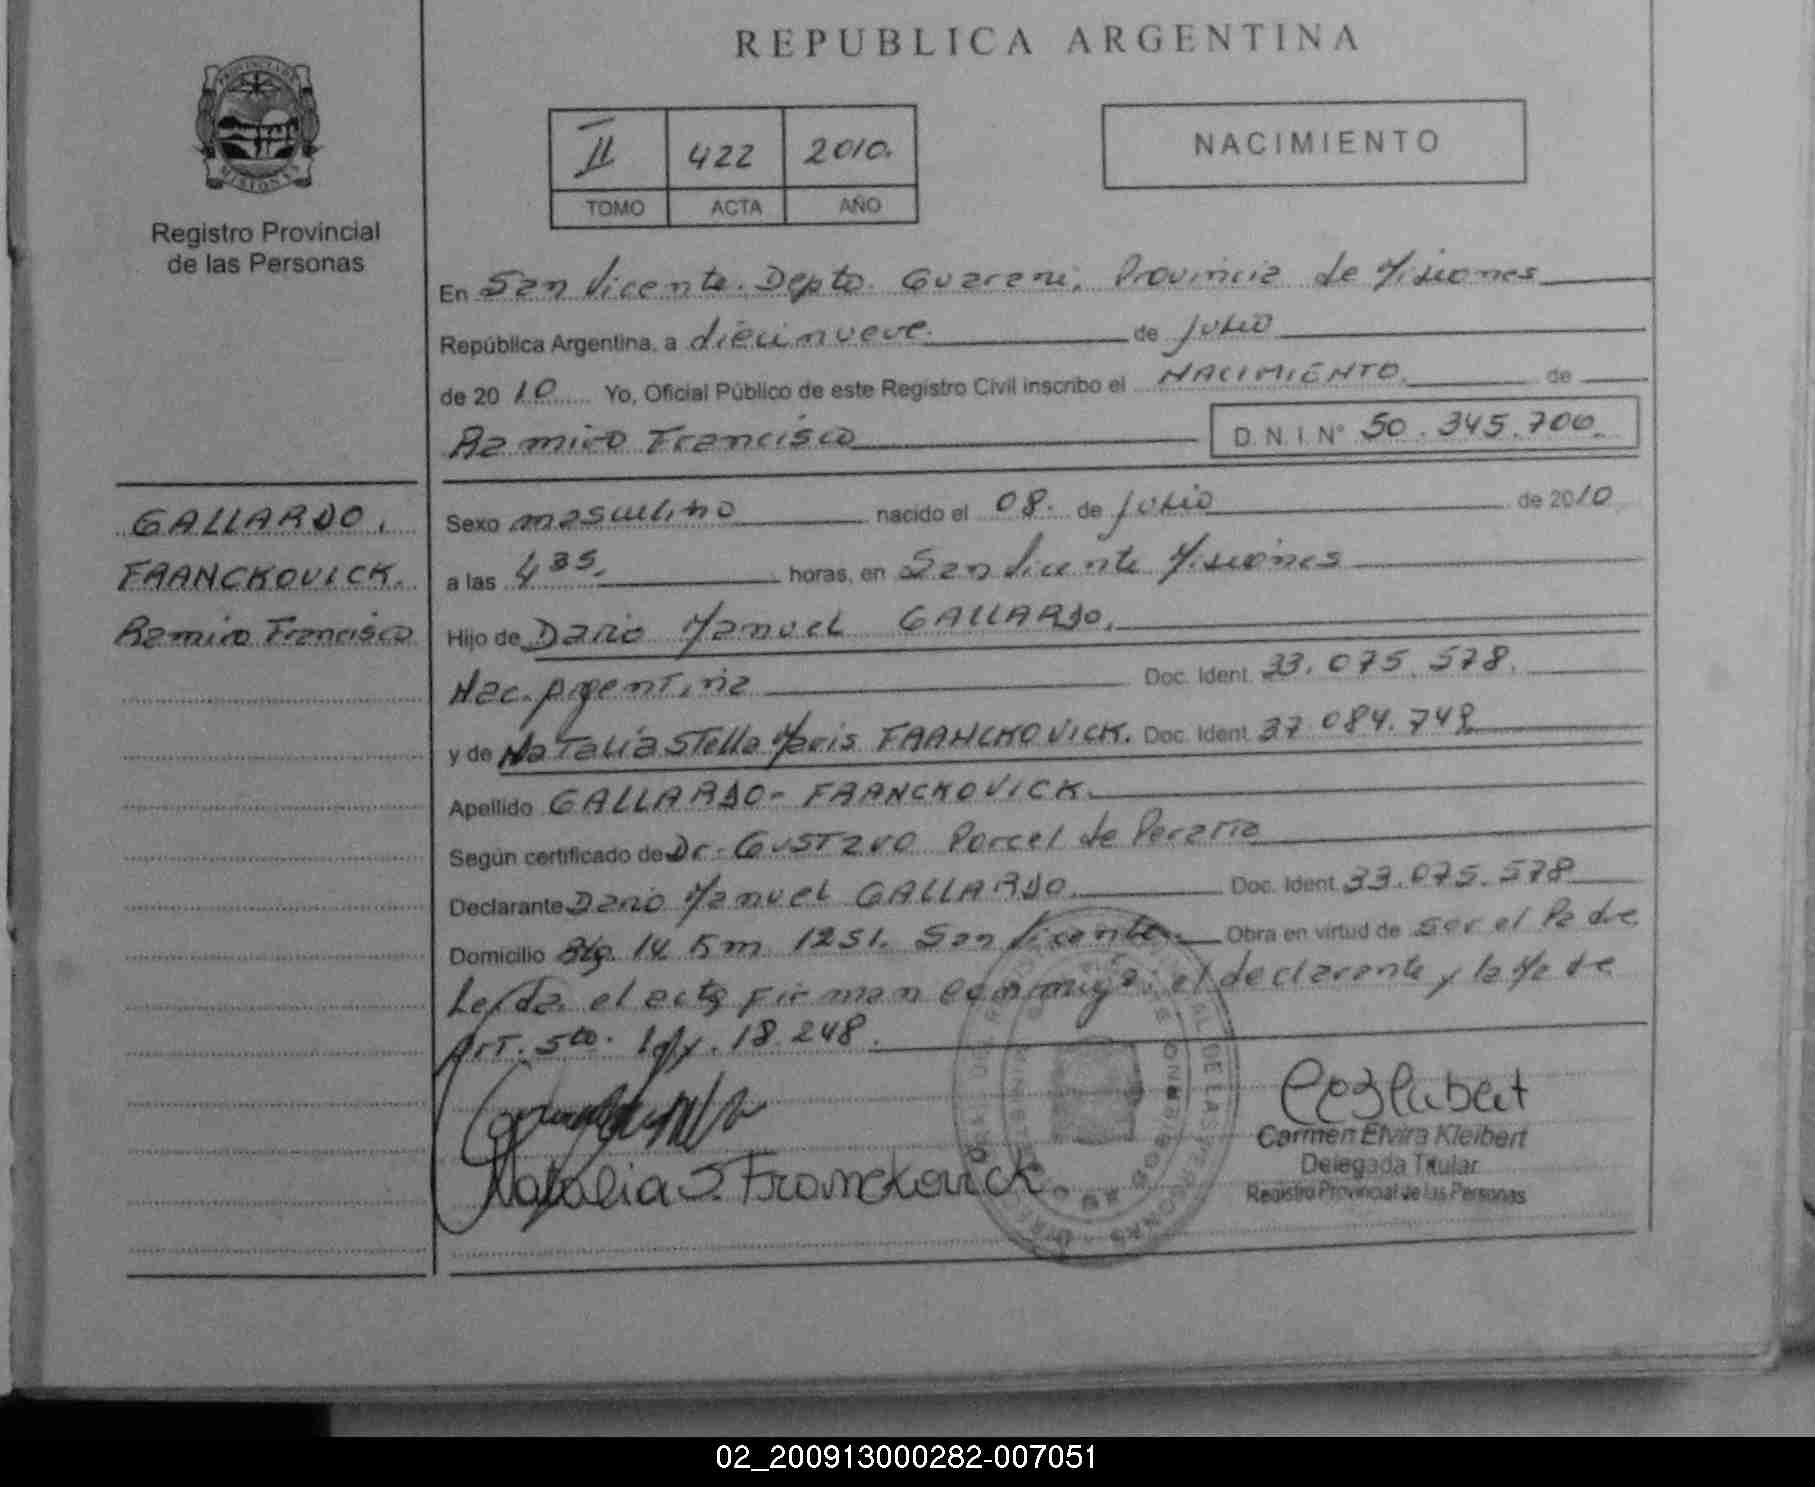 REPUBLICA ARGENTINA
PROVINCIA DE
MISIONES
Registro Provincial
de las Personas
II 422 2010.
TOMO ACTA AÑO
NACIMIENTO
En San Vicente. Depto. Guarani, Provincia de Misiones
República Argentina, a diecinueve. de julio
de 2010 Yo, Oficial Público de este Registro Civil inscribo el NACIMIENTO. de
Ramiro Francisco D.N.I. N° 50.345.700.
GALLARDO,
FRANCKOVICK.
Ramiro Francisco
Sexo masculino nacido el 08. de julio de 2010
a las 4 35. horas, en San Vicente Misiones
Hijo de Dario Manuel GALLARDO.
Nac. Argentina Doc. Ident. 33.075.578.
y de Natalia Stella Maris FRANCKOVICK. Doc. Ident. 37.084.749
Apellido GALLARDO - FRANCKOVICK.
Según certificado de Dr. GUSTAVO Porcel de Peralta
Declarante Dario Manuel GALLARDO. Doc. Ident. 33.075.578
Domicilio 14 Km 1251. San Vicente. Obra en virtud de ser el Padre
Leida el acta firman conmigo: el declarante y la Madre
Art. 5to. ley. 18.248.
Natalia S. Franckovick
Carmen Elvira Kleibert
Delegada Titular
Registro Provincial de las Personas
02_200913000282-007051